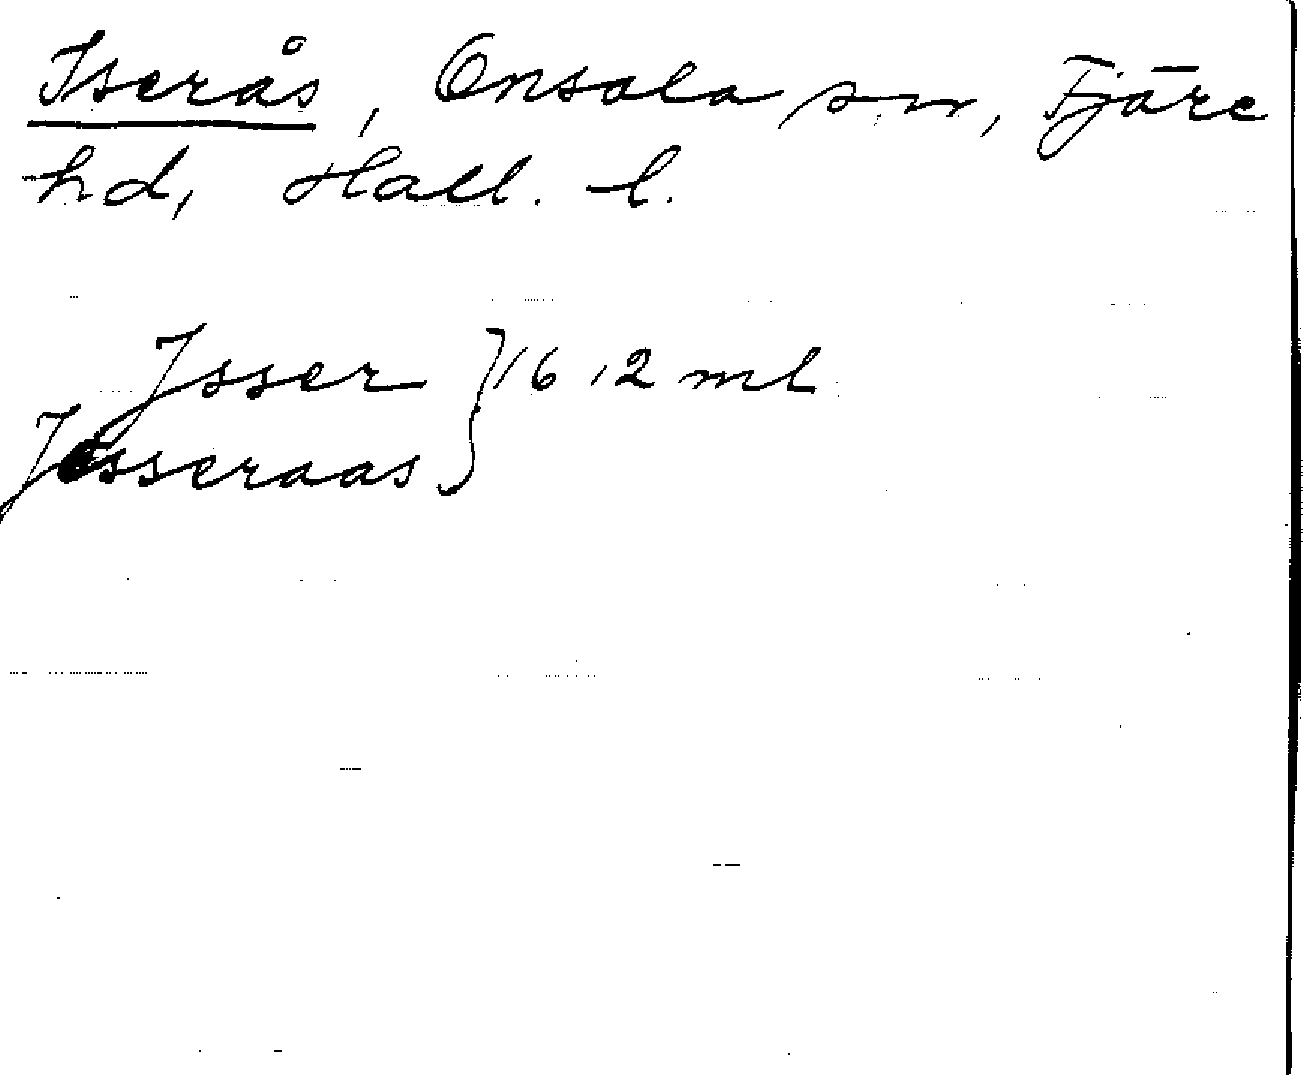 Iserås, Onsala sn, Fjäre
hd, Hall. l.
Jsser } 1612 ml
Jsseraas